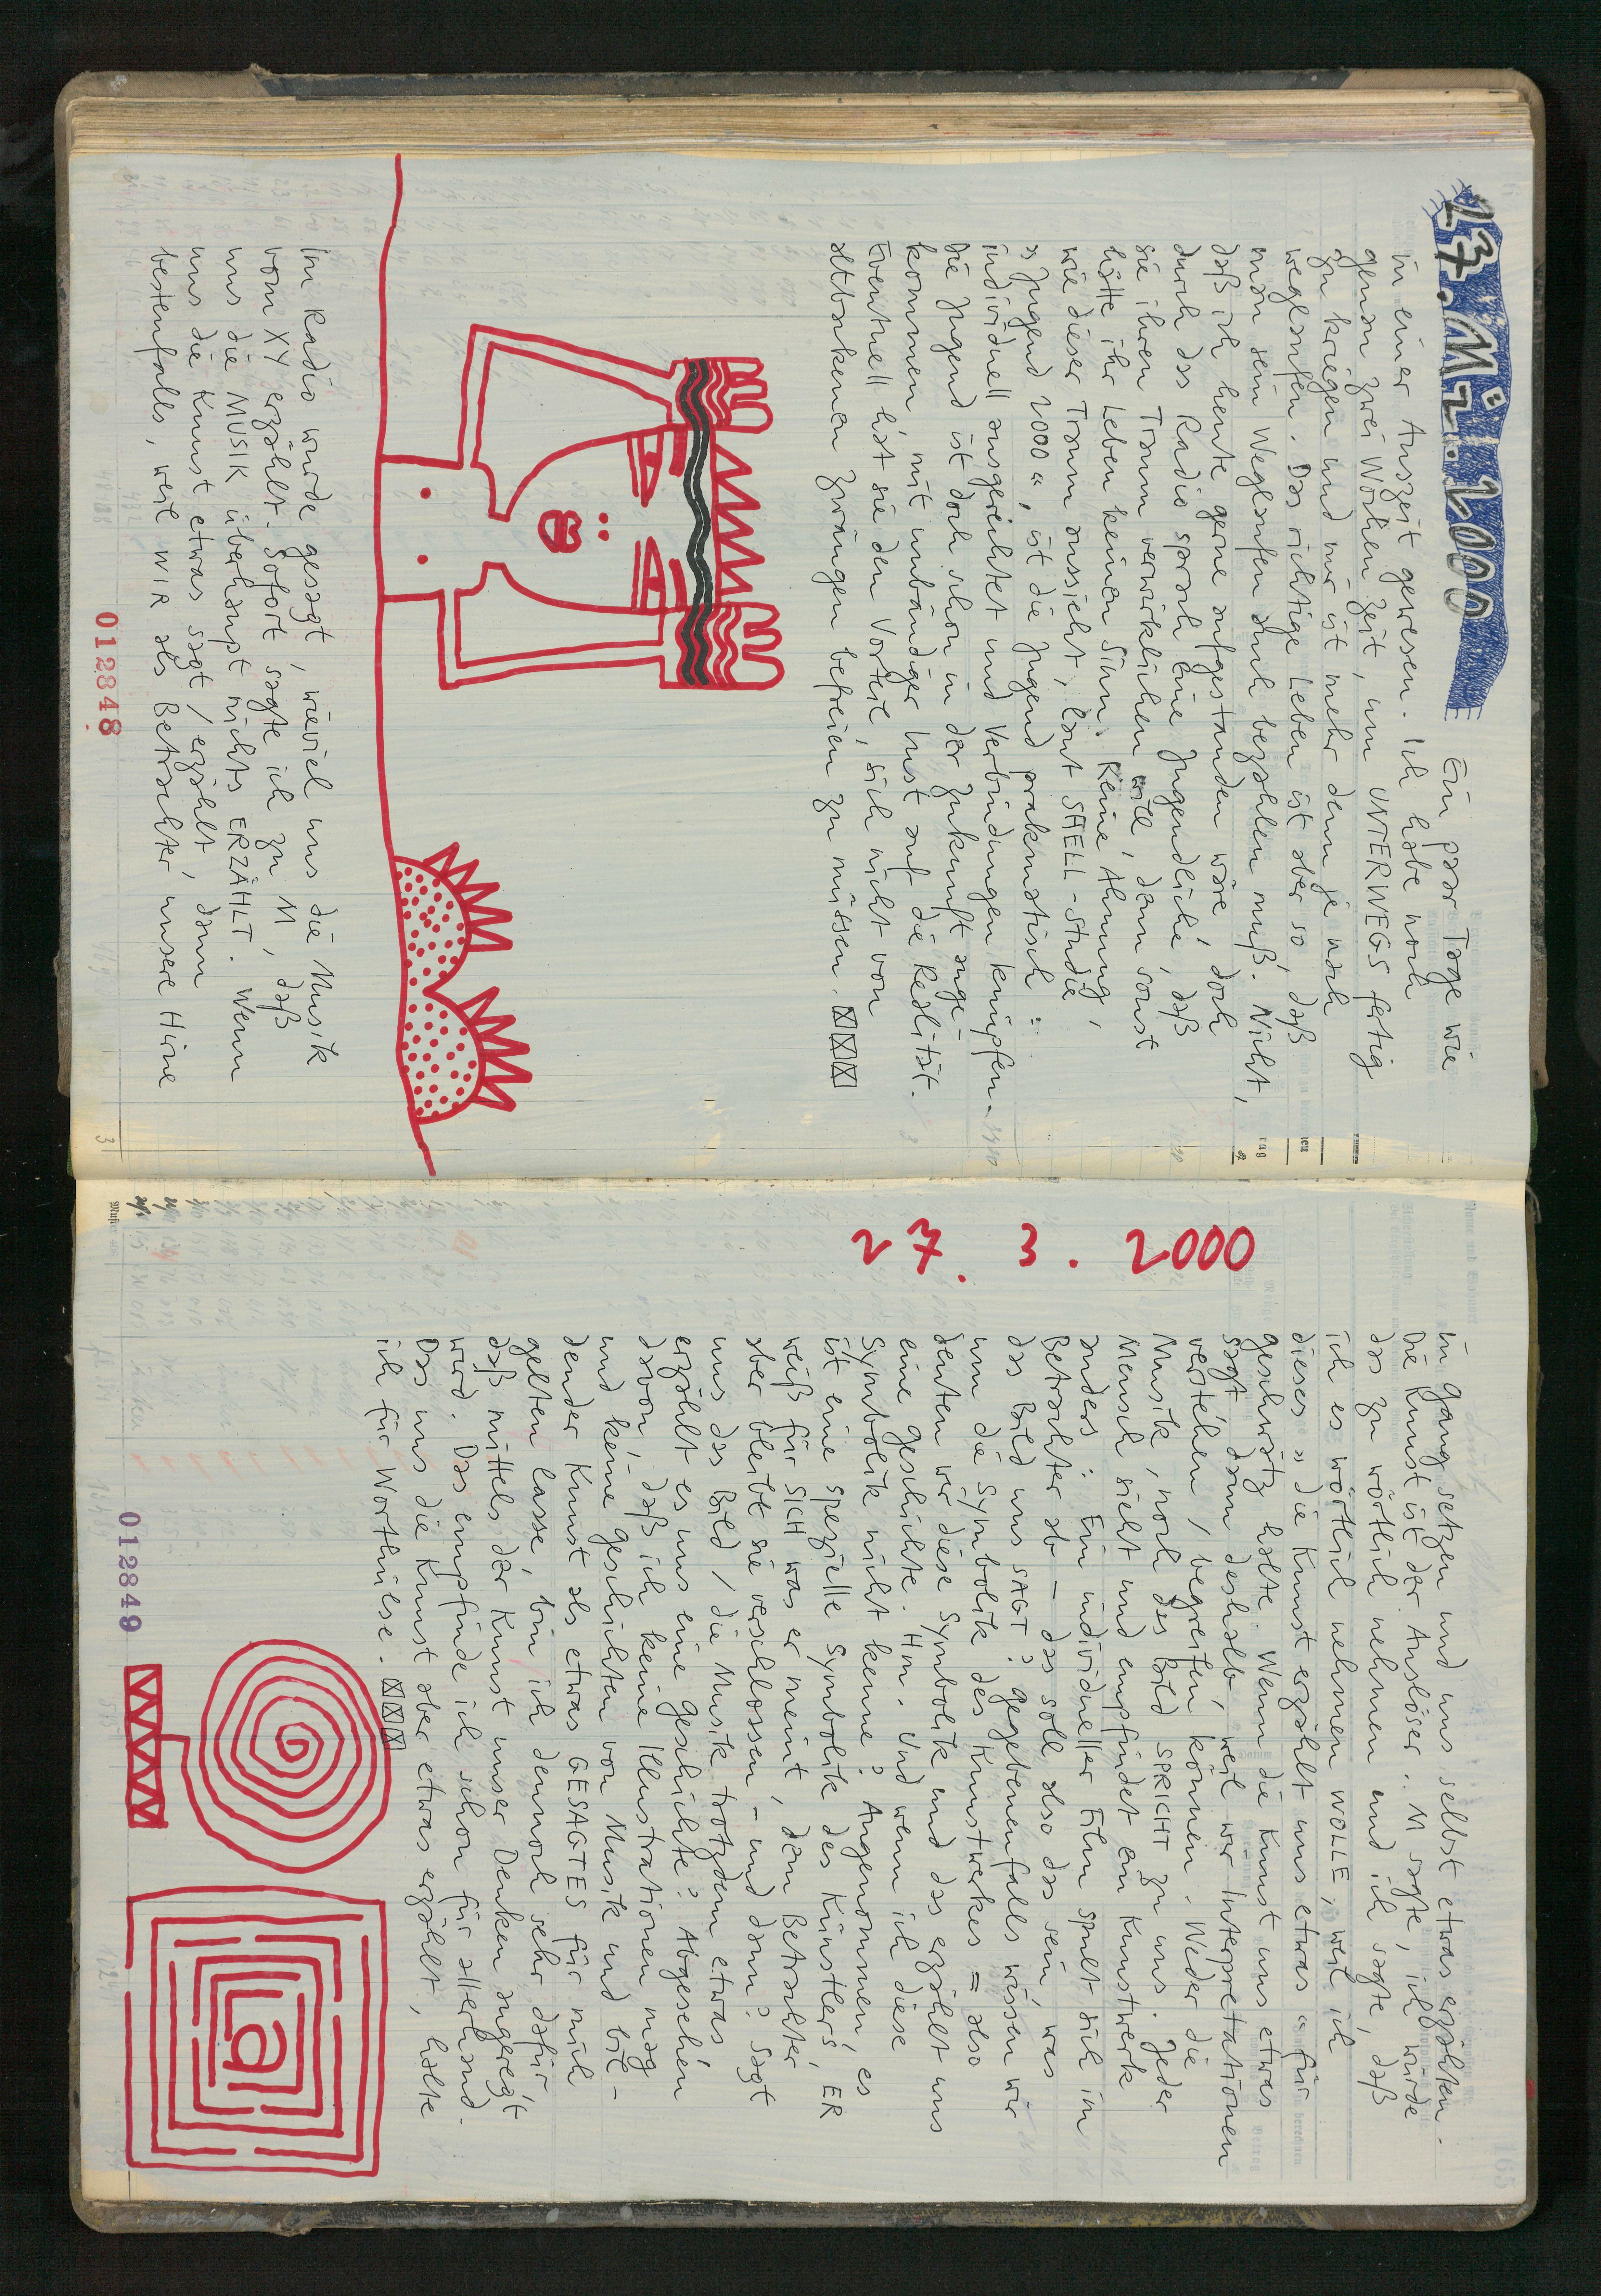 27. Mz. 2000
Ein paar Tage wie
in einer Auszeit gewesen. Ich habe noch
genau zwei Wochen Zeit, um UNTERWEGS fertig
zu kriegen und mir ist mehr denn je nach
weglaufen. Das richtige Leben ist aber so, daß
man sein Weglaufen auch bezahlen muß. Nicht,
daß ich heute gerne aufgestanden wäre, doch
durch das Radio sprach eine Jugendliche, daß
sie ihren Traum verwirklichen will, denn sonst
hätte ihr Leben keinen Sinn. Keine Ahnung,
wie dieser Traum aussieht, laut SHELL-Studie
»Jugend 2000«, ist die Jugend prakmatisch:
individuell ausgerichtet und Verbindungen knüpfen.
Die Jugend ist doch schon in der Zukunft ange-
kommen mit unbändiger Lust auf die Realität.
Eventuell hat sie den Vorteil, sich nicht von
altbackenen Zwängen befreien zu müssen.
Im Radio wurde gesagt, wieviel uns die Musik
vom XY erzählt. Sofort sagte ich zu M, daß
uns die MUSIK überhaupt nichts ERZÄHLT. Wenn
uns die Kunst etwas sagt / erzählt, dann
bestenfalls, weil WIR als Betrachter unsere Hirne
012848
3
27. 3. 2000
in Gang setzen und uns selbst etwas erzählen.
Die Kunst ist der Auslöser.. M sagte, ich würde
das zu wörtlich nehmen und ich sagte, daß
ich es wörtlich nehmen WOLLE, weil ich
dieses »die Kunst erzählt uns etwas« für
Geschwätz halte. Wenn die Kunst uns etwas
sagt, dann deshalb, weil wir Interpretationen
verstehen / begreifen können. Weder die
Musik, noch das Bild SPRICHT zu uns. Jeder
Mensch sieht und empfindet ein Kunstwerk
anders: Ein individueller Film spult sich im
Betrachter ab – das soll also das sein, was
das Bild uns SAGT? Gegebenenfalls wissen wir
um die Symbolik des Kunstwerkes = also
deuten wir diese Symbolik und das erzählt uns
eine Geschichte. Hm. Und wenn ich diese
Symbolik nicht kenne? Angenommen, es
ist eine spezielle Symbolik des Künstlers, ER
weiß für SICH was er meint, dem Betrachter
aber bleibt sie verschlossen – und dann? Sagt
uns das Bild / die Musik trotzdem etwas,
erzählt es uns eine Geschichte? Abgesehen
davon, daß ich keine Illustrationen mag
und keine Geschichten von Musik und bil-
dender Kunst als etwas GESAGTES für mich
gelten lasse, bin ich dennoch sehr dafür,
daß mittels der Kunst unser Denken angeregt
wird. Das empfinde ich schon für allerhand.
Das uns die Kunst aber etwas erzählt, halte
ich für Worthülse.
a
012849